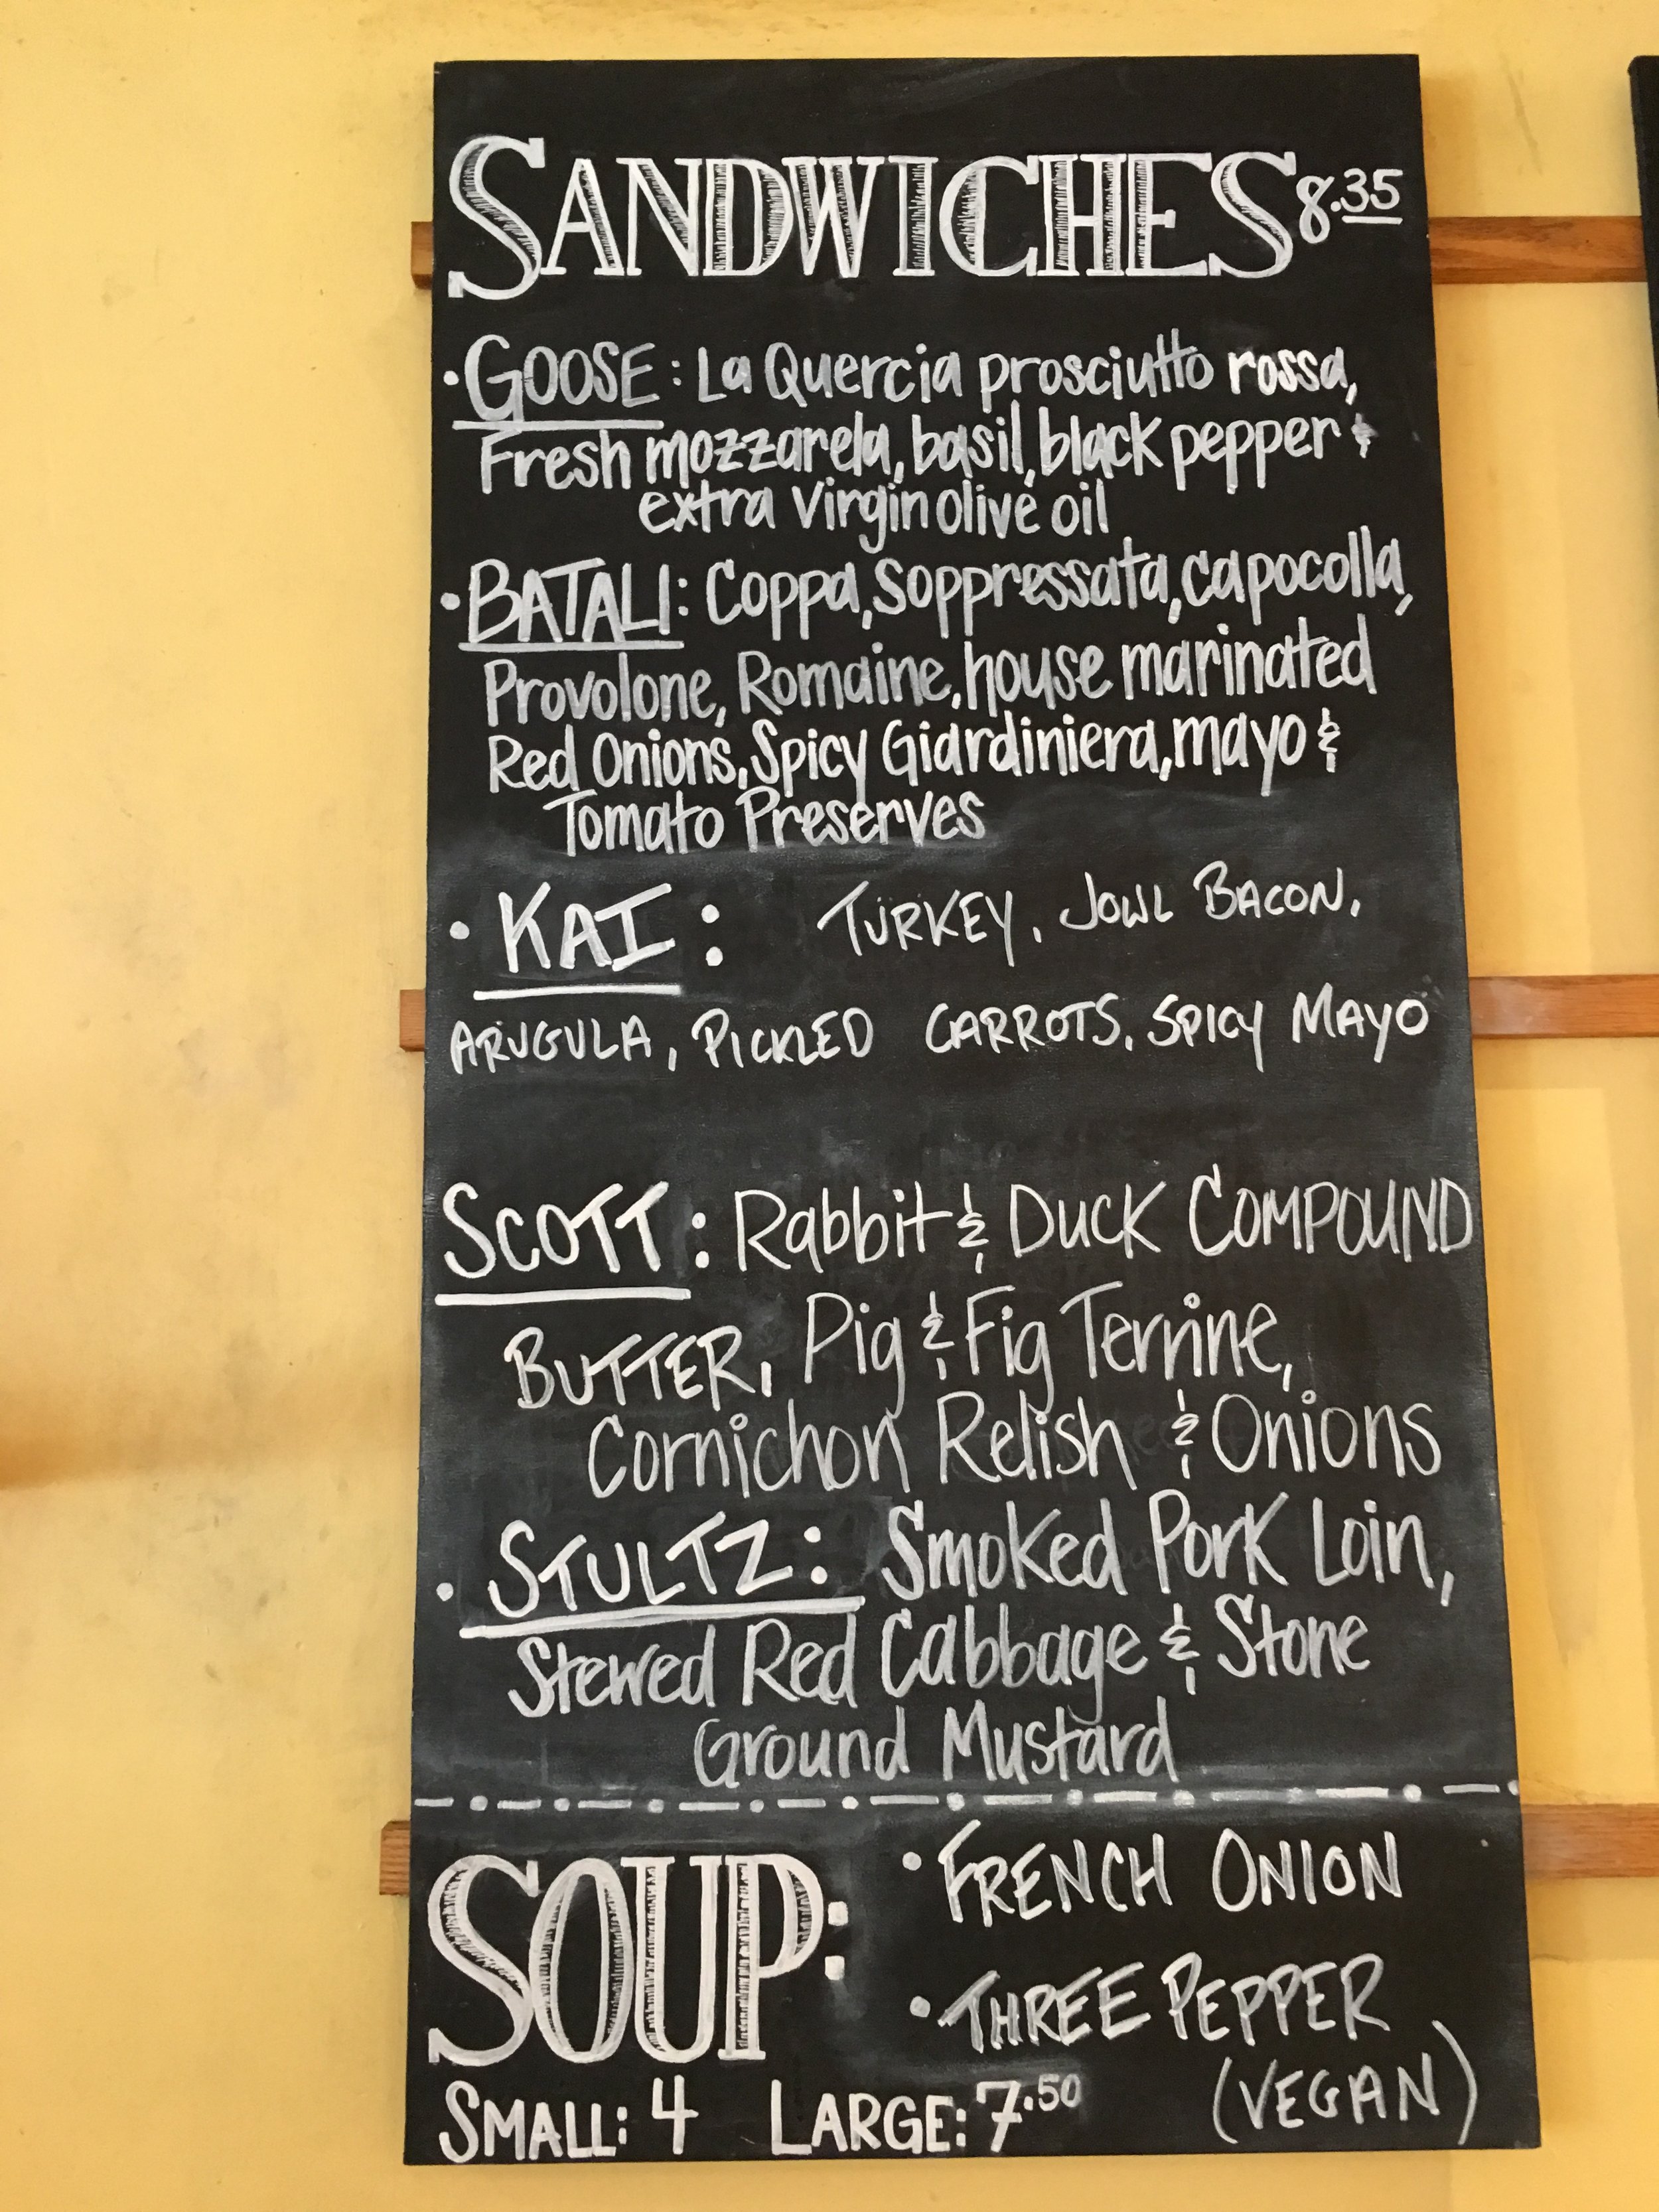 SANDWICHES 8.35
• GOOSE: La Quercia prosciutto rossa,
Fresh mozzarela, basil, black pepper &
extra virgin olive oil
• BATALI: Coppa, Soppressata, capocolla,
Provolone, Romaine, house marinated
Red Onions, Spicy Giardiniera, mayo &
Tomato Preserves
• KAI: TURKEY, JOWL BACON,
ARUGULA, PICKLED CARROTS, SPICY MAYO
SCOTT: Rabbit & DUCK COMPOUND
BUTTER, Pig & Fig Terrine,
Cornichon Relish & Onions
• STULTZ: Smoked Pork Loin,
Stewed Red Cabbage & Stone
Ground Mustard
SOUP: • FRENCH ONION
• THREE PEPPER
(VEGAN)
SMALL: 4 LARGE: 7.50